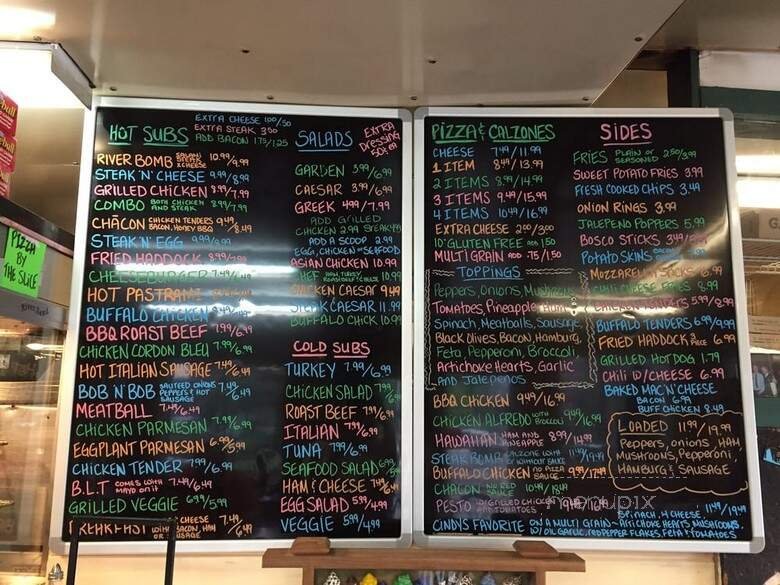 EXTRA CHEESE 1.00/.50
HOT SUBS EXTRA STEAK 3.50
ADD BACON 1.75/1.25
RIVER BOMB 10.99/9.99
STEAK 'N' CHEESE 9.99/8.99
GRILLED CHICKEN 8.99/7.99
COMBO BOTH CHICKEN AND STEAK 8.99/7.99
CHACON CHICKEN TENDERS BACON, HONEY BBQ 9.49/8.49
STEAK N' EGG
FRIED HADDOCK
CHEESEBURGER 7.49/6.49
HOT PASTRAMI
BUFFALO CHICKEN
BBQ ROAST BEEF 7.99/6.99
CHICKEN CORDON BLEU 7.99/6.99
HOT ITALIAN SAUSAGE 7.49/6.49
BOB 'N' BOB SAUTEED ONIONS PEPPERS & HOT SAUSAGE 7.49/6.49
MEATBALL 7.49/6.49
CHICKEN PARMESAN 7.99/6.99
EGGPLANT PARMESAN 6.99/5.99
CHICKEN TENDER 7.99/6.99
B.L.T COMES WITH MAYO ON IT 7.49/6.49
GRILLED VEGGIE 6.99/5.99
CHEESE 7.49/6.49
WITH BACON, HAM OR SAUSAGE
SALADS EXTRA DRESSING
GARDEN 5.99/6.99
CAESAR 3.99/6.99
GREEK 4.99/7.99
ADD GRILLED
CHICKEN 2.99
ADD A SCOOP 2.99
EGG, CHICKEN OR SEAFOOD
ASIAN CHICKEN 10.99
CHEF
CHICKEN CAESAR 9.49
STEAK CAESAR 11.99
BUFFALO CHICK 10.99
COLD SUBS
TURKEY 7.99/6.99
CHICKEN SALAD 7.99/6.99
ROAST BEEF 7.99/6.99
ITALIAN 7.99/6.99
TUNA 7.99/6.99
SEAFOOD SALAD
HAM & CHEESE 7.49/6.49
EGG SALAD 5.99/4.99
VEGGIE 5.99/4.99
PIZZA & CALZONES
CHEESE 7.49/11.99
1 ITEM 8.49/13.99
2 ITEMS 8.99/14.99
3 ITEMS 9.49/15.99
4 ITEMS 10.49/16.99
EXTRA CHEESE 2.00/3.00
10" GLUTEN FREE ADD 1.50
MULTI GRAIN ADD .75/1.50
TOPPINGS
Peppers, Onions, Mushrooms
Tomatoes, Pineapple, Ham
Spinach, Meatballs, Sausage
Black Olives, Bacon, Hamburg,
Feta, Pepperoni, Broccoli,
Artichoke Hearts, Garlic
And Jalepenos
BBQ CHICKEN 9.49/16.99
CHICKEN ALFREDO WITH BROCCOLI 9.49/16.99
HAWAIIAN HAM AND PINEAPPLE 8.99/14.99
STEAK BOMB CALZONE WITH OR WITHOUT SAUCE 11.49/19.49
BUFFALO CHICKEN NO PIZZA SAUCE
CHACON NO RED SAUCE 10.49/18.49
PESTO W/GRILLED CHICKEN AND TOMATOES
SPINACH, 4 CHEESE 11.49/19.49
CINDYS FAVORITE ON A MULTI GRAIN - ARTICHOKE HEARTS MUSHROOMS,
W/ OIL GARLIC, RED PEPPER FLAKES FETA & TOMATOES
SIDES
FRIES PLAIN OR SEASONED 2.50/3.99
SWEET POTATO FRIES 3.99
FRESH COOKED CHIPS 3.49
ONION RINGS 3.99
JALEPENO POPPERS 5.99
BOSCO STICKS
POTATO SKINS
MOZZARELLA STICKS 6.99
CHILI CHEESE FRIES 8.99
CHICKEN TENDERS 5.99/8.99
BUFFALO TENDERS 6.99/9.99
FRIED HADDOCK PIECE 6.99
GRILLED HOT DOG 1.79
CHILI W/CHEESE 6.99
BAKED MAC'N'CHEESE
BACON 6.99
BUFF CHICKEN 8.49
LOADED 11.99/19.99
Peppers, onions, HAM
MUSHROOMS, Pepperoni,
HAMBURG & SAUSAGE
PIZZA
BY
THE SLICE
menupix